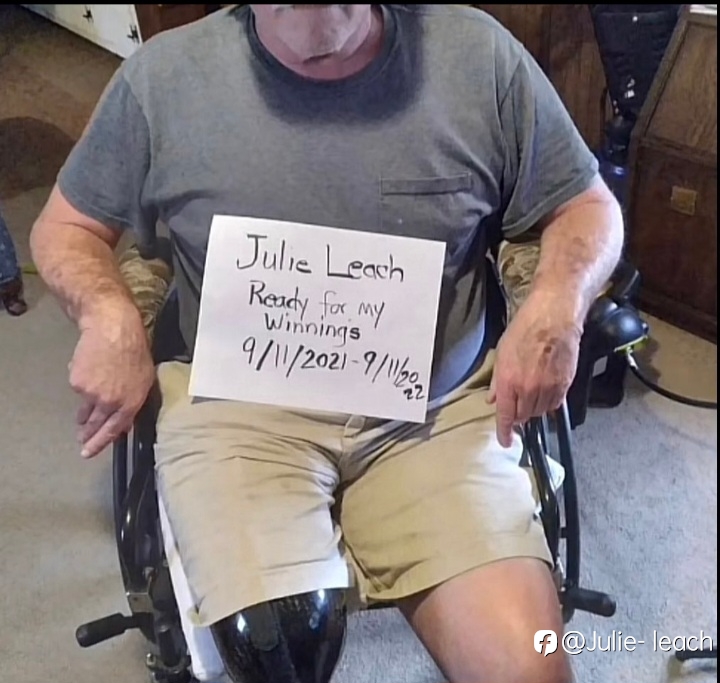 Julie Leach
Ready for my
Winnings
9/11/2021-9/11/20
22
@Julie- leach